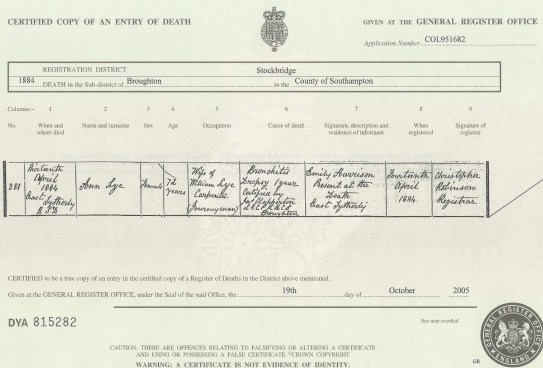 CERTIFIED COPY OF AN ENTRY OF DEATH
GIVEN AT THE GENERAL REGISTER OFFICE
Application Number COL951682
REGISTRATION DISTRICT Stockbridge
1884 DEATH in the Sub-district of Broughton in the County of Southampton
Columns:- 1 2 3 4 5 6 7 8 9
No. When and where died Name and surname Sex Age Occupation Cause of death Signature, description and residence of informant When registered Signature of registrar
381
April
1884
East Tytherly
Ann Lye
Female
72 years
Wife of
William Lye
Carpenter
(Journeyman)
Bronchitis
Dropsy 1 year
Certified by
Broughton
Emily Harrison
Present at the
Death
East Tytherly
April
1884
Christopher
Robinson
Registrar
CERTIFIED to be a true copy of an entry in the certified copy of a Register of Deaths in the District above mentioned.
Given at the GENERAL REGISTER OFFICE, under the Seal of the said Office, the 19th day of October 2005
DYA 815282
See note overleaf
CAUTION: THERE ARE OFFENCES RELATING TO FALSIFYING OR ALTERING A CERTIFICATE
AND USING OR POSSESSING A FALSE CERTIFICATE ©CROWN COPYRIGHT
WARNING: A CERTIFICATE IS NOT EVIDENCE OF IDENTITY.
GR
GENERAL REGISTER OFFICE
ENGLAND